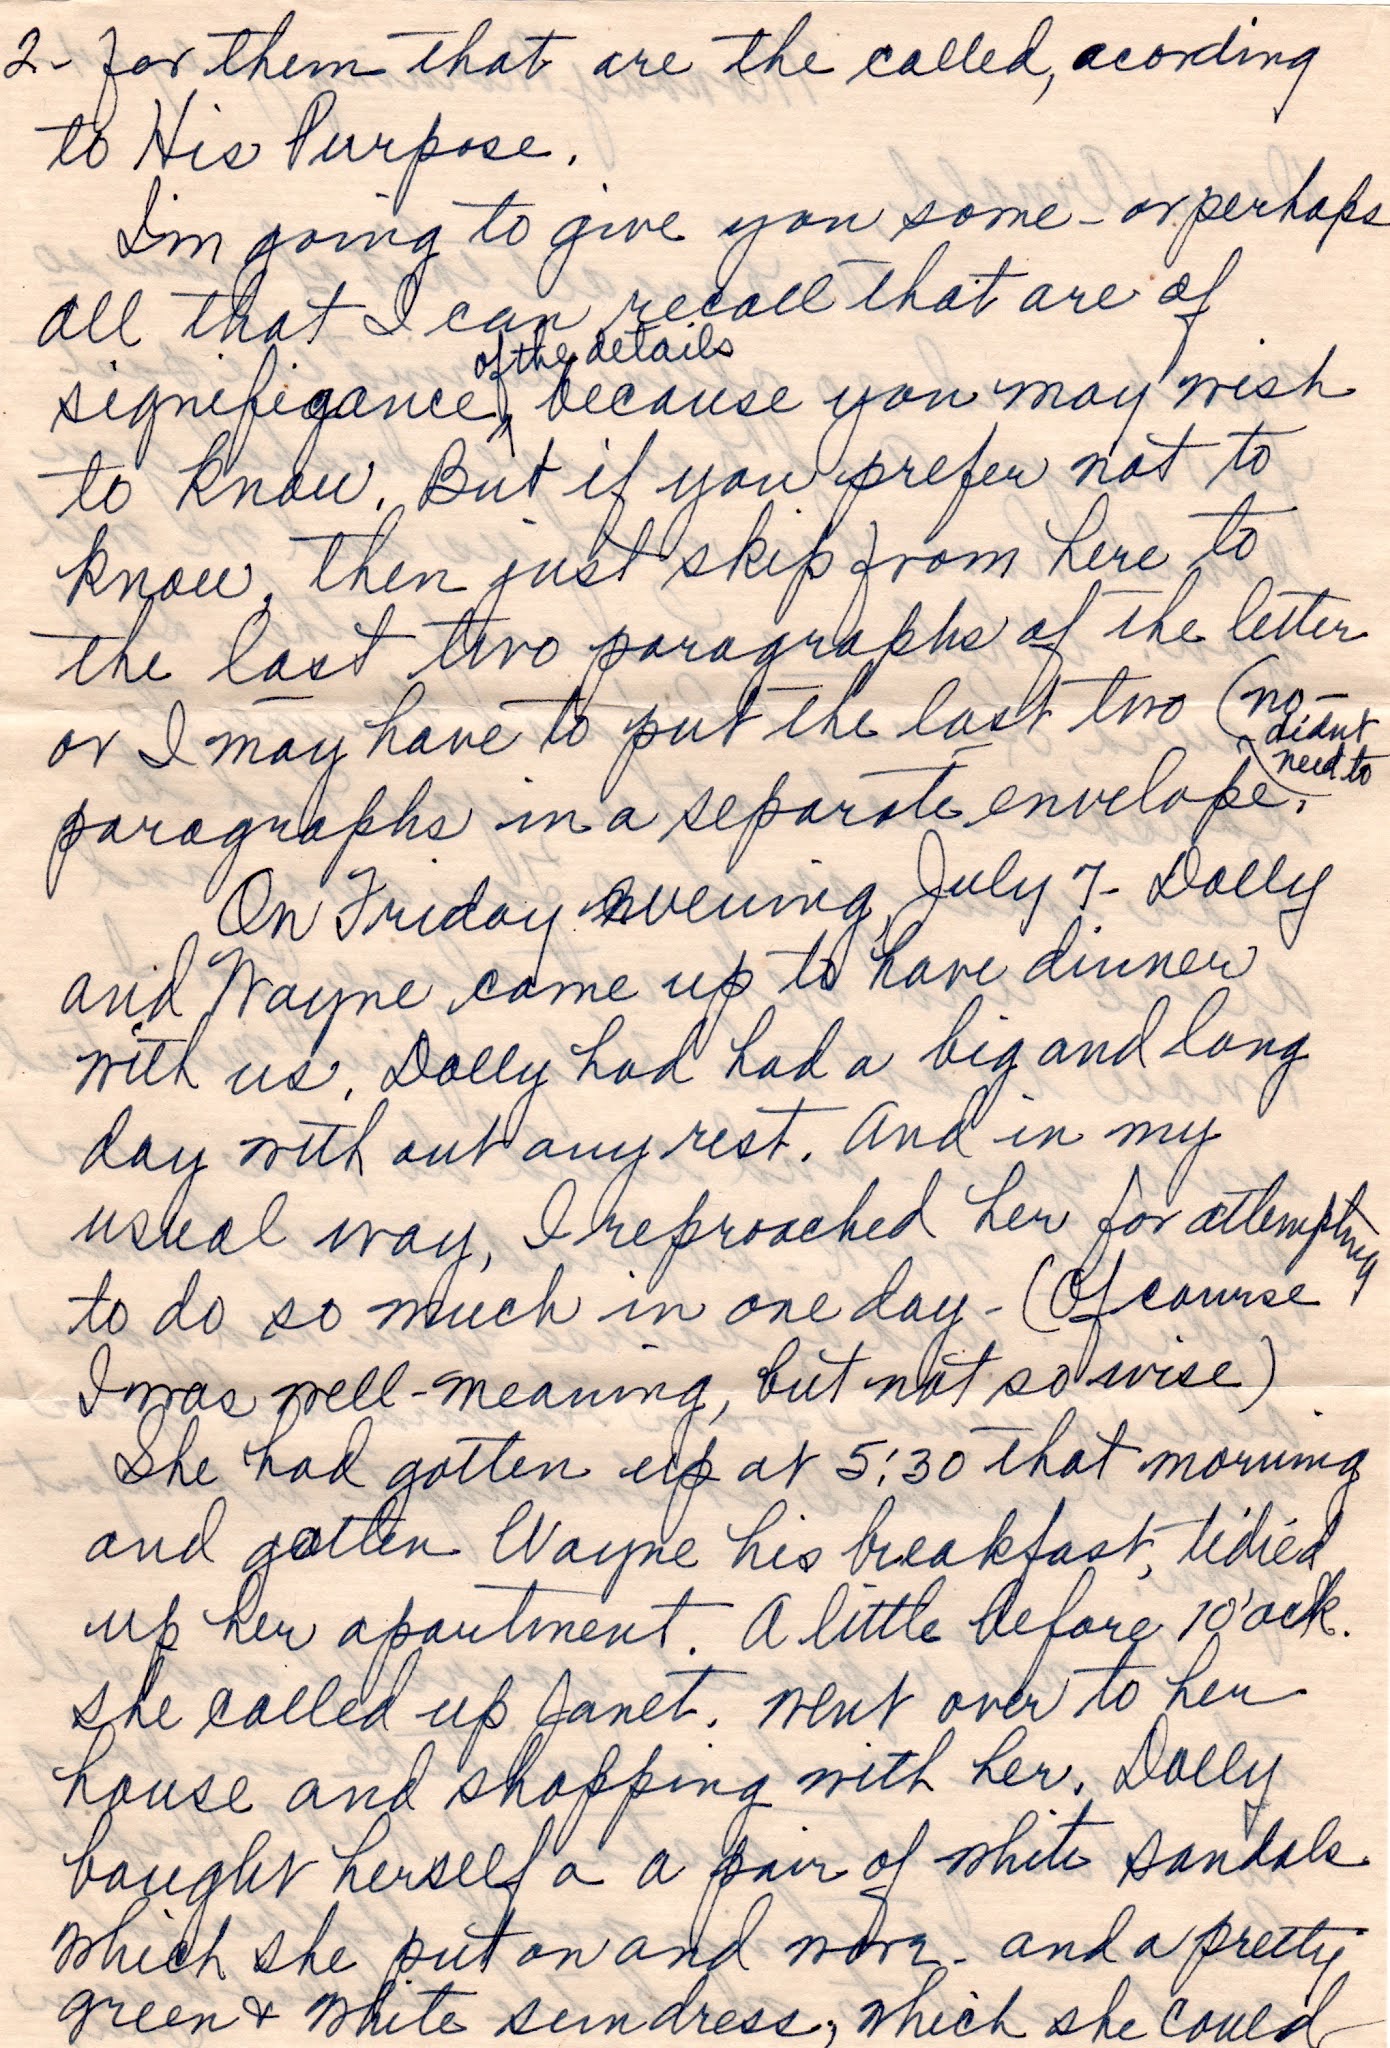 2- for them that are the called, acording
to His Purpose.
I'm going to give you some - or perhaps
all that I can recall that are of
of the details
signifigance, because you may wish
to know. But if you prefer not to
know, then just skip from here to
the last two paragraphs of the letter
or I may have to put the last two (no-
didnt
need to
paragraphs in a separate envelope.
On Friday evening, July 7- Dolly
and Wayne came up to have dinner
with us. Dolly had had a big and long
day with out any rest. And in my
usual way, I reproached her for attempting
to do so much in one day - (Of course
I was well-meaning, but not so wise)
She had gotten up at 5:30 that morning
and gotten Wayne his breakfast, tidied
up her apartment. A little before 10'oclk.
she called up Janet. Went over to her
house and shopping with her. Dolly
bought herself a a pair of white sandals
which she put on and wore - and a pretty
green & white sundress, which she could